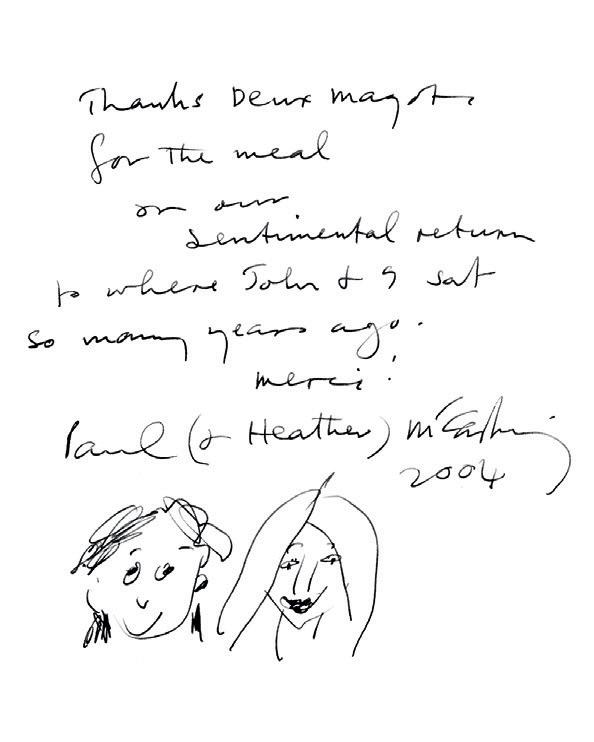 Thanks Deux Magots
for the meal
on our
sentimental return
to where John & I sat
so many years ago.
merci!
Paul (& Heather) McCartney
2004